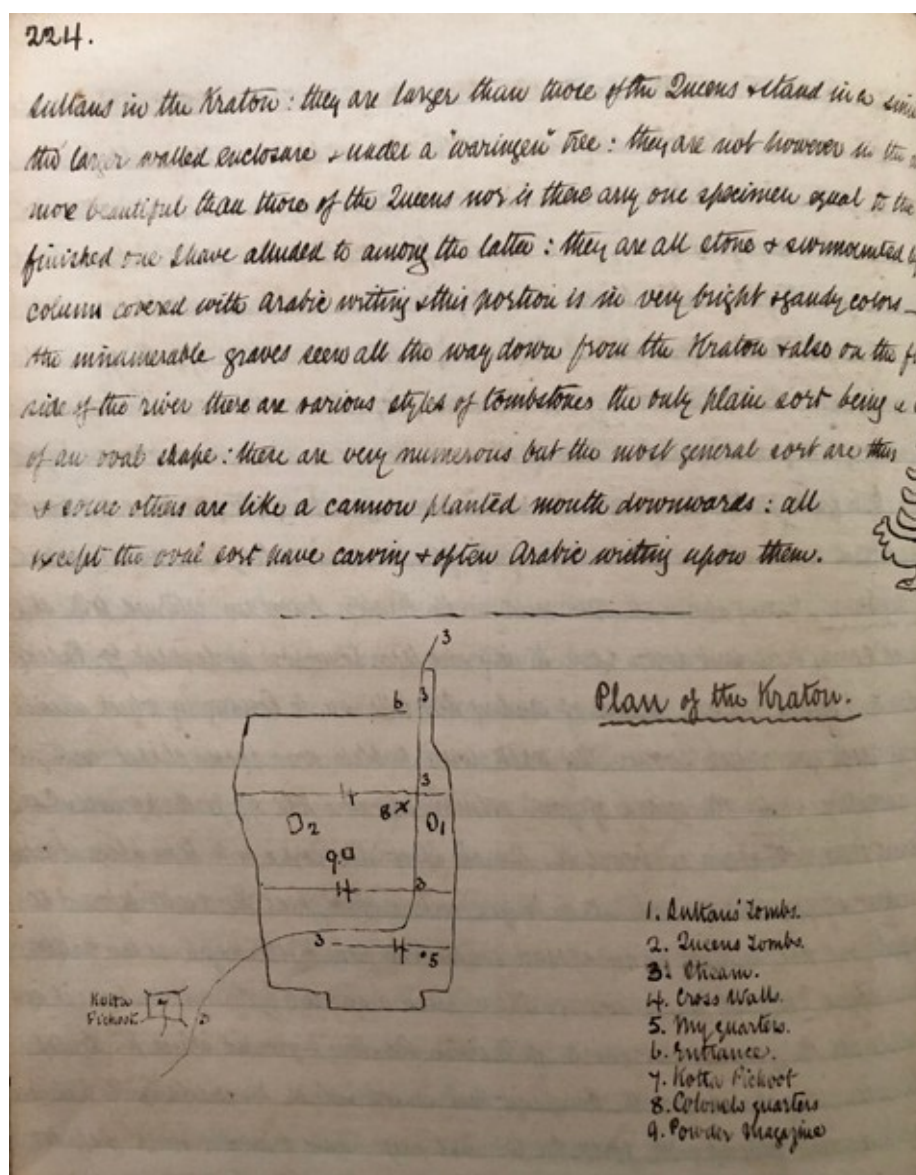 224.
Sultans in the Kraton: they are larger than those of the Queens & stand in a
the larger walled enclosure & under a "waringen" tree: they are not however in the
more beautiful than those of the Queens nor is there any one specimen equal to the
finished one I have alluded to among the latter: they are all stone & surmounted
column covered with Arabic writing & this portion is in very bright & gaudy colors—
the innumerable graves seen all the way down from the Kraton & also on the
side of the river there are various styles of tombstones the only plain sort being a
of an oval shape: these are very numerous but the most general sort are thus
& some others are like a cannon planted mouth downwards: all
except the oval sort have carving & often Arabic writing upon them.
3
6
3
Plan of the Kraton.
3
4
8
2
1
9
4
3
3
4
5
Kotta
Pichoot
7
3
1. Sultans' Tombs.
2. Queens Tombs.
3. Stream.
4. Cross Wall.
5. My quarters.
6. Entrance.
7. Kotta Pichoot
8. Colonels quarters
9. Powder Magazine